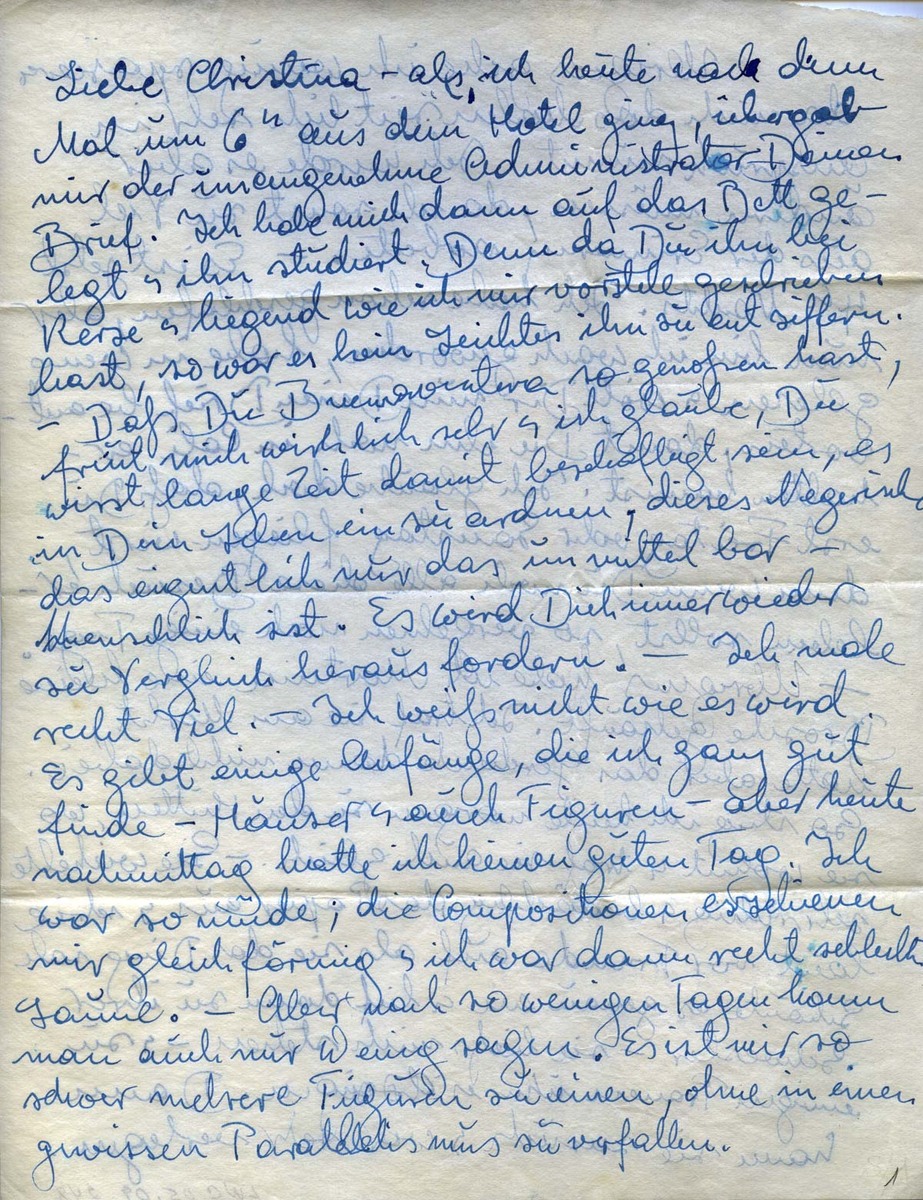 Liebe Christina – als ich heute nach dem
Mal um 6 h aus dem Hotel ging, übergab
mir der unangenehme Administrator Deinen
Brief. Ich habe mich dann auf das Bett ge-
legt & ihn studiert. Denn da Du ihn bei
Kerze & liegend wie ich mir vorstelle geschrieben
hast, so war es kein Leichtes ihn zu entziffern.
– Daß Du Buenaventura so genossen hast,
freut mich wirklich sehr & ich glaube, Du
wirst lange Zeit damit beschäftigt sein, es
in Dein Leben einzuordnen, dieses Negerische
das eigentlich nur das unmittelbar –
Menschlich ist. Es wird Dich immer wieder
zu Vergleich herausfordern. – Ich male
recht viel. – Ich weiß nicht wie es wird.
Es gibt einige Anfänge, die ich ganz gut
finde – Häuser & auch Figuren – aber heute
nachmittag hatte ich keinen guten Tag. Ich
war so müde; die Compositionen erschienen
mir gleichförmig & ich war dann recht schlechter
Laune. – Aber nach so wenigen Tagen kann
man auch nur wenig sagen. Es ist mir so
schwer mehrere Figuren zu einen, ohne in einen
gewissen Parallelismus zu verfallen.
1